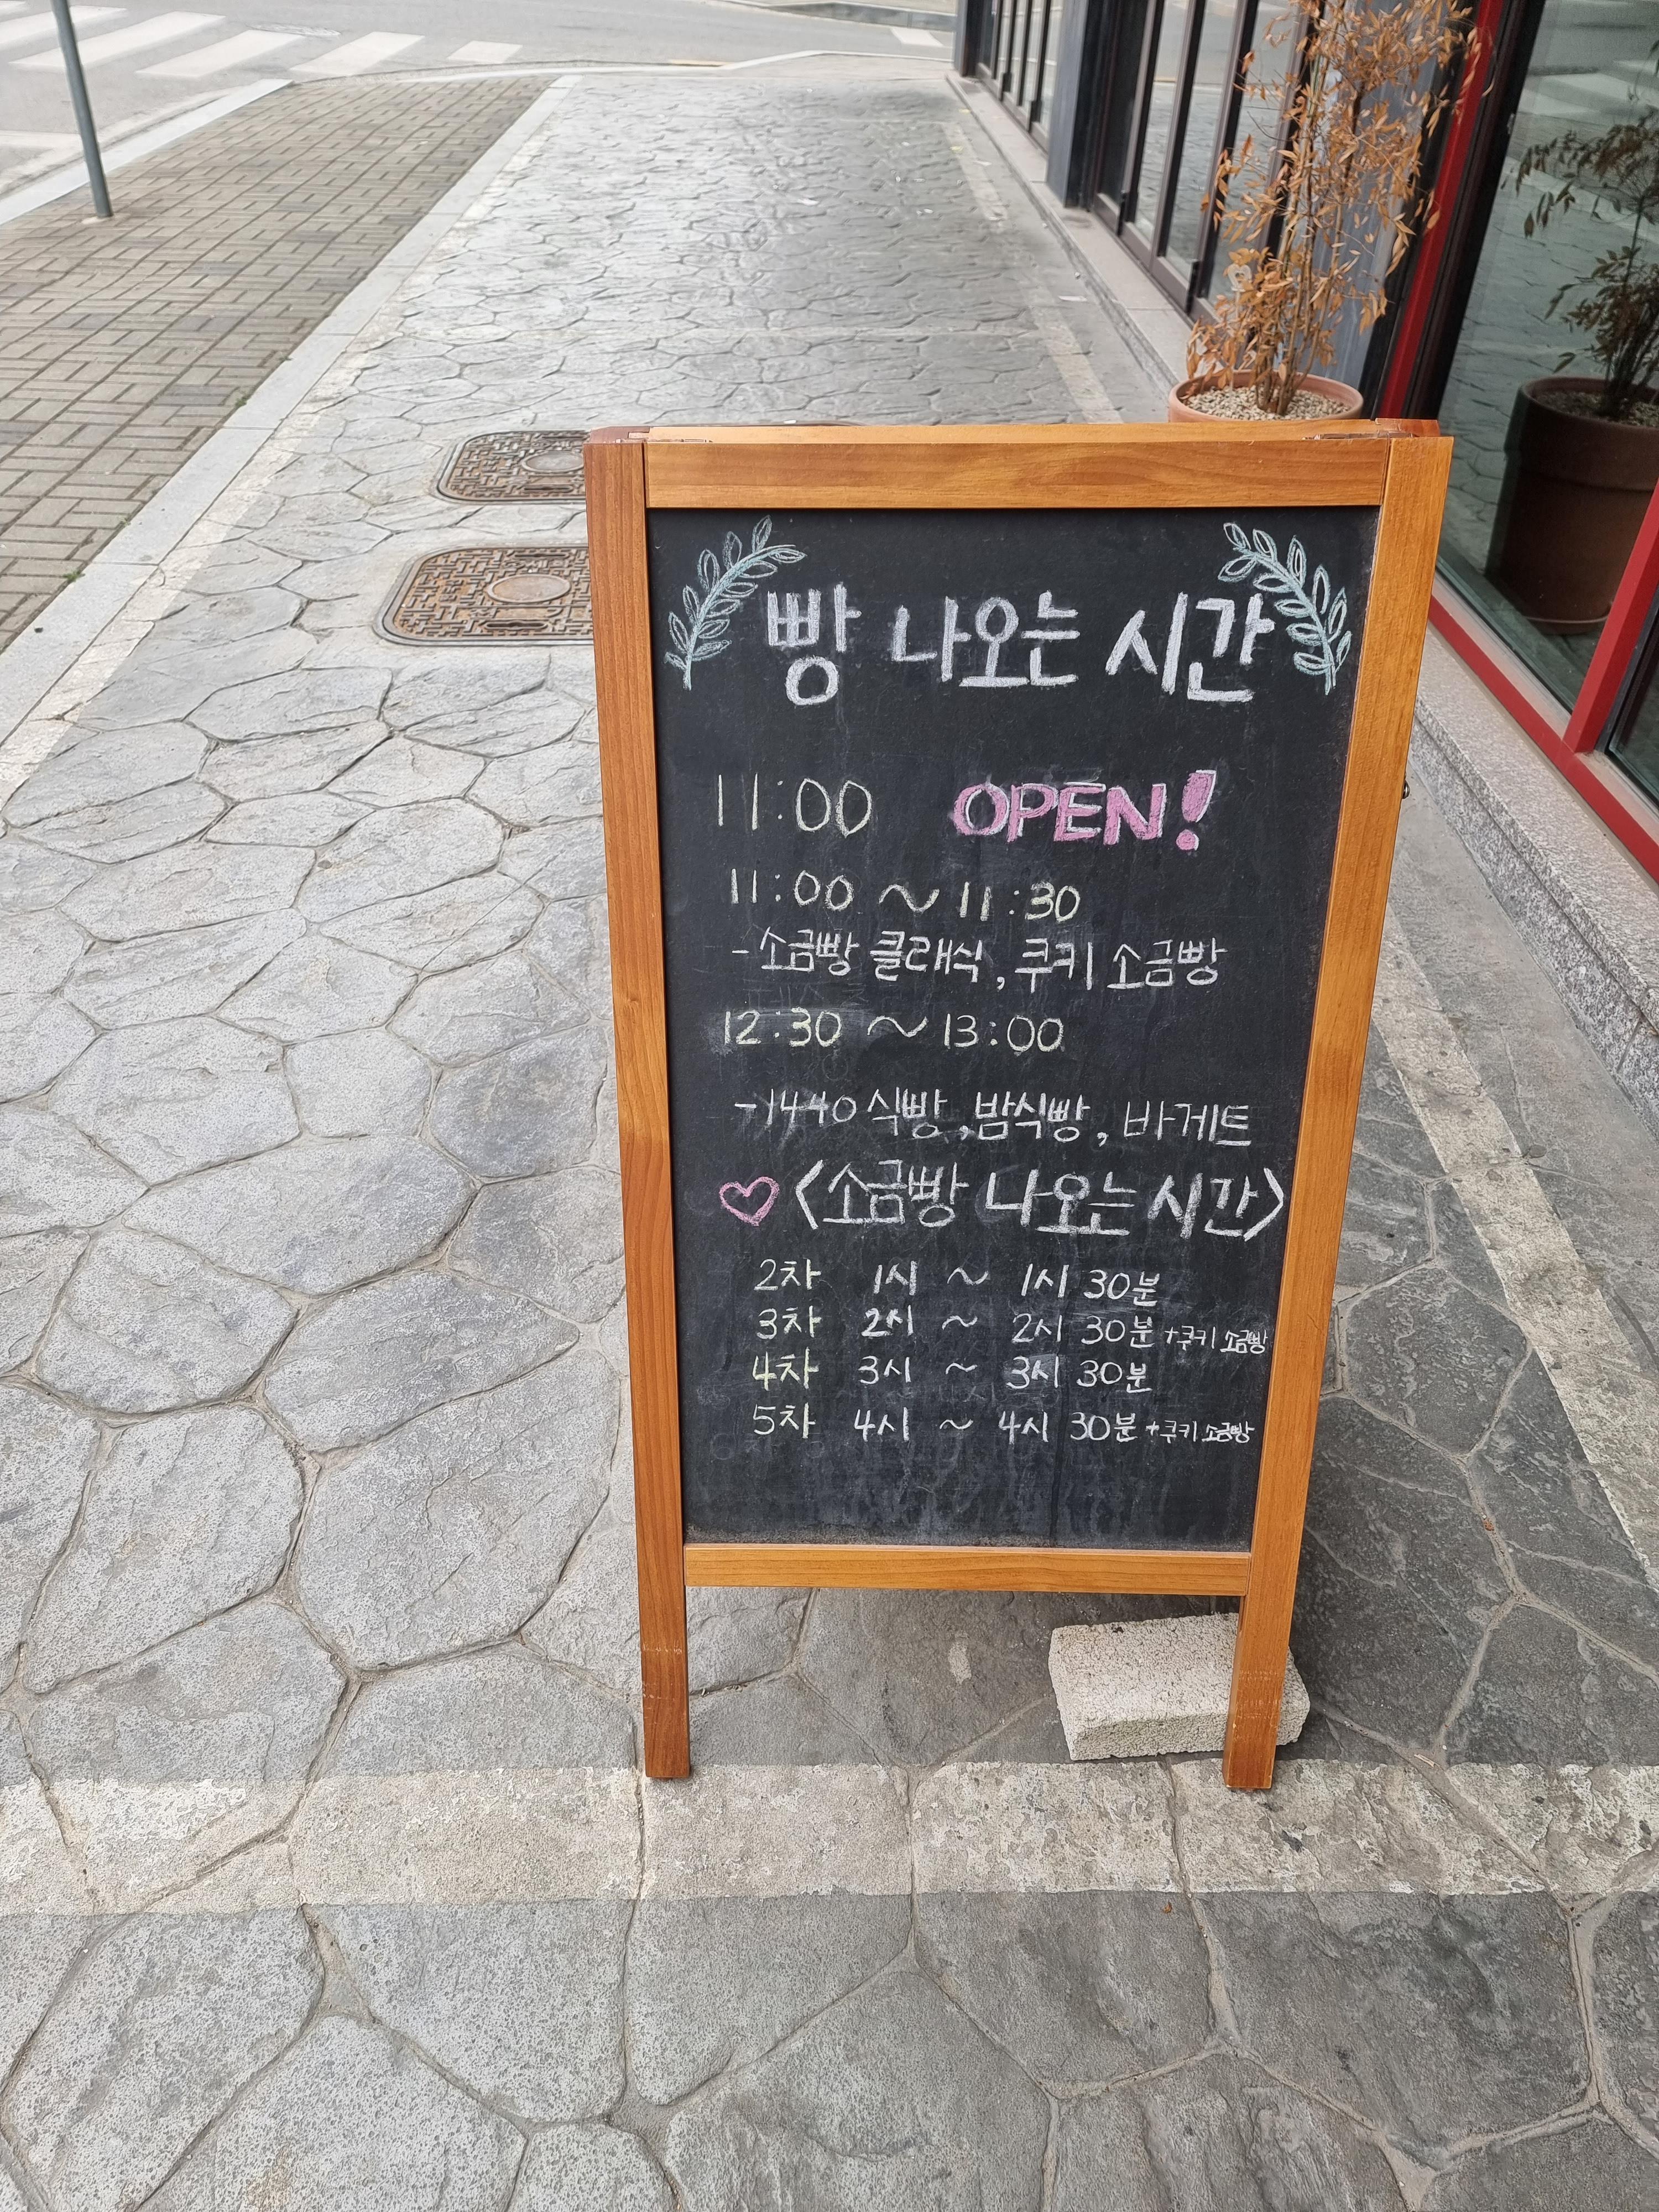 빵 나오는 시간
11:00 OPEN!
11:00 ~ 11:30
-소금빵 클래식, 쿠키 소금빵
12:30 ~ 13:00
-1440 식빵, 밤식빵, 바게트
♡ <소금빵 나오는 시간>
2차 1시 ~ 1시 30분
3차 2시 ~ 2시 30분 +쿠키 소금빵
4차 3시 ~ 3시 30분
5차 4시 ~ 4시 30분 +쿠키 소금빵